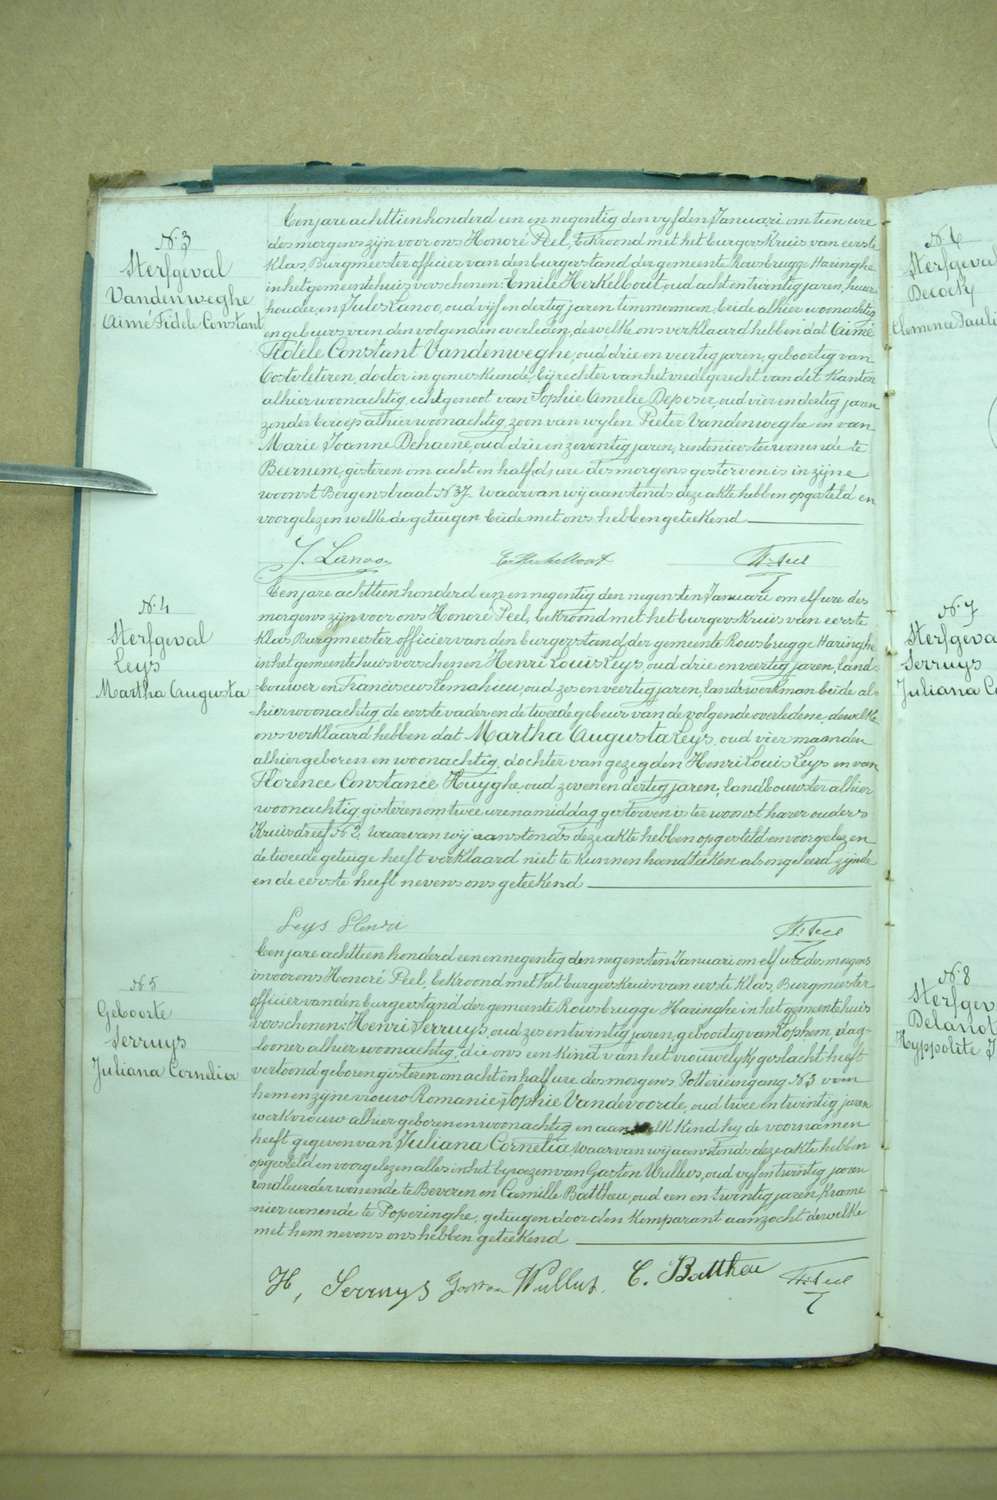 N. 3
Sterfgeval
Vandenweghe
Aimé Fidele Constant
Ten jare achttien honderd een en negentig den vyfden Januari, om tien ure
des morgens zijn voor ons Honoré Peel, bekroond met het burgerskruis van eerste
Klas, Burgmeester officier van den burgerstand der gemeente Rousbrugge Haringhe
in het gemeentehuis verschenen: Emile Herkelbout, oud acht en twintig jaren, huis-
houder, en Jules Lanoo, oud vijf en dertig jaren timmerman, beide alhier woonachtig
en gebuers van den volgenden overleden, dewelke ons verklaard hebben dat Aimé
Fidele Constant Vandenweghe, oud drie en veertig jaren, geboortig van
Oostvleteren, doctor in geneeskunde, bijrechter van het vredegerecht van dit Kanton
alhier woonachtig, echtgenoot van Sophie Amelie Deposer, oud vier en dertig jaren
zonder beroep alhier woonachtig, zoon van wylen Pieter Vandenweghe en van
Marie Joanne Dehaene, oud drie en zeventig jaren, renteniersterwonende te
Beernem, gisteren om acht en half (½) ure des morgens gestorven is in zijne
woonst Bergenstraat N 37. Waarvan wij aanstonds deze akte hebben opgesteld en
voorgelezen welke de getuigen beide met ons hebben geteekend
J. Lanoo Em Herkelbout H. Peel
N. 4
Sterfgeval
Leys
Martha Augusta
Ten jare achttien honderd een en negentig den negensten Januari om elf ure des
morgens zijn voor ons Honoré Peel, bekroond met het burgerskruis van eerste
Klas Burgmeester officier van den burgerstand der gemeente Rousbrugge Haringhe
in het gemeentehuis verschenen Henri Louis Leys oud drie en veertig jaren, land-
bouwer en Franciscus Lemahieu, oud zes en veertig jaren, landswerkman beide al-
hier woonachtig de eerste vader en de tweede gebeur van de volgende overledene, dewelke
ons verklaard hebben dat Martha Augusta Leys, oud vier maanden
alhier geboren en woonachtig, dochter van gezegden Henri Louis Leys en van
Florence Constance Huyghe oud zeven en dertig jaren, landbouwster alhier
woonachtig gisteren om twee ure namiddag gestorven is ter woonst harer ouders
Kruisdreef N 2. Waarvan wij aanstonds deze akte hebben opgesteld en voorgelezen
de tweede getuige heeft verklaard niet te kunnen handteeken als ongeleerd zijnde
en de eerste heeft nevens ons geteekend
Leys Henri H. Peel
N. 5
Geboorte
Serruys
Juliana Cornelia
Ten jare achttien honderd een en negentig den negensten Januari om elf ure des morgens
is voor ons Honoré Peel, bekroond met het burgerskruis van eerste Klas, Burgmeester
officier van den burgerstand der gemeente Rousbrugge Haringhe in het gemeentehuis
verschenen: Henri Serruys, oud zes en twintig jaren, geboortig van Lophem, dag-
looner alhier woonachtig, die ons een kind van het vrouwelijk geslacht heeft
vertoond geboren gisteren om acht en half ure des morgens Potterieingang N 3 van
hem en zijne vrouw Romanie Sophie Vandevoorde, oud twee en twintig jaren
werkvrouw alhier geboren en woonachtig en aan welk kind hij de voornamen
heeft gegeven van Juliana Cornelia, waarvan wij aanstonds deze akte hebben
opgesteld en voorgelezen alles in het bijwezen van Gaston Wullus, oud vijf en twintig jaren
wonende te Beveren en Camille Battheu, oud een en twintig jaren Krame
nier wonende te Poperinghe, getuigen door den Komparant aanzocht dewelke
met hem nevens ons hebben geteekend
H, Serruys Gaston Wullus. C. Battheu H. Peel
N. 6
Sterfgeva
Decock
Clemence Pauli
N. 7
Sterfgeva
Serruys
Juliana Co
N. 8
Sterfgev
Delanot
Hyppolite J